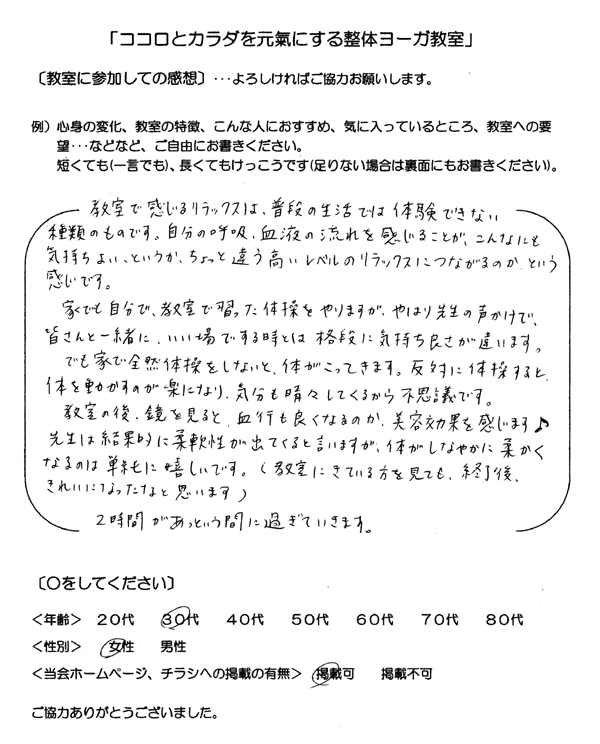 「ココロとカラダを元氣にする整体ヨーガ教室」
〔教室に参加しての感想〕・・・よろしければご協力お願いします。
例）心身の変化、教室の特徴、こんな人におすすめ、気に入っているところ、教室への要
望・・・などなど、ご自由にお書きください。
短くても(一言でも)、長くてもけっこうです(足りない場合は裏面にもお書きください)。
教室で感じるリラックスは、普段の生活では体験できない
種類のものです。自分の呼吸、血液の流れを感じることが、こんなにも
気持ちよい、というか、ちょっと違う高いレベルのリラックスにつながるのか、という
感じです。
家でも自分で、教室で習った体操をやりますが、やはり先生の声かけで、
皆さんと一緒に、いい場でする時とは格段に気持ち良さが違います。
でも家で全然体操をしないと、体がこってきます。反対に体操すると、
体を動かすのが楽になり、気分も晴々してくるから不思議です。
教室の後、鏡を見ると、血行も良くなるのか、美容効果を感じます♪
先生は結果的に柔軟性が出てくると言いますが、体がしなやかに柔かく
なるのは単純に嬉しいです。（教室にきている方を見ても、終了後、
きれいになったなと思います）
2時間があっという間に過ぎていきます。
〔○をしてください〕
＜年齢＞ 20代 30代 40代 50代 60代 70代 80代
＜性別＞ 女性 男性
＜当会ホームページ、チラシへの掲載の有無＞ 掲載可 掲載不可
ご協力ありがとうございました。